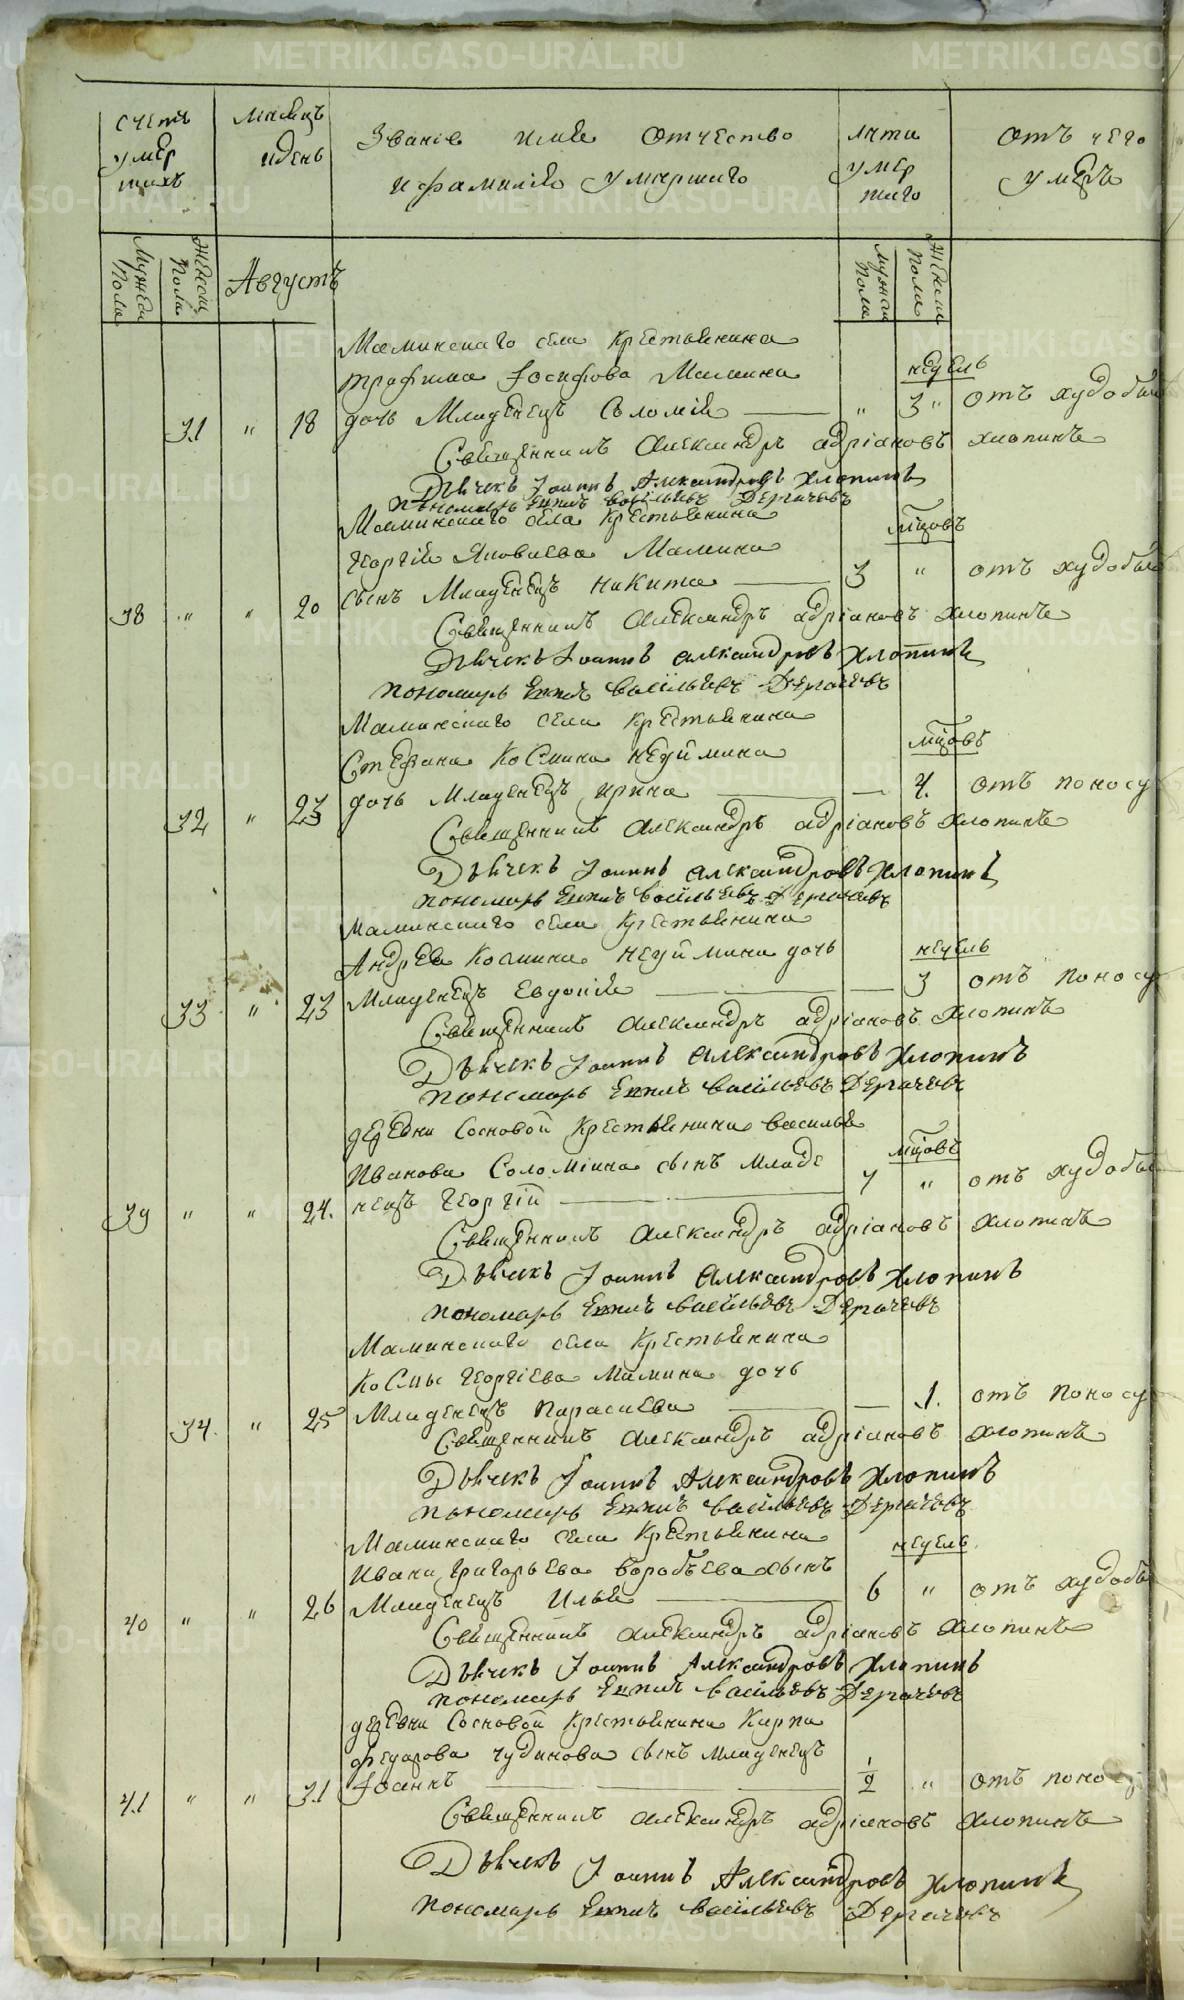 счетъ умер шихъ
Мужеска Пола
Женска Пола
месяцъ и день
Августъ
Званіе имя отчество
и фамилія умершаго
лѣта умер шаго
мужска Пола
Женска Пола
отъ чего умеръ
Маминскаго села Крестьянина
трафима Іосифова Мамина
31 " 18 дочь Младенецъ Соломія " недель 3 " отъ худобы
Священникъ Александръ адріановъ хлопинъ
Дьячекъ Іоаннъ Александровъ Хлопинъ
пономарь Васильевъ Дергачевъ
Маминскаго села Крестьянина
Георгія Яковлева Мамина
38 " " 20 сынъ Младенецъ никита мцовъ 3 " отъ худобы
Священникъ Александръ адріановъ Хлопинъ
Дьячекъ Іоаннъ александровъ Хлопинъ
пономарь Васильевъ Дергачевъ
Маминскаго села крестьянина
Стефана Космина неуймина
32 " 23 дочь Младенецъ ирина мцовъ 4. отъ поносу
Священникъ Александръ адріановъ Хлопинъ
Дьячекъ Іоаннъ александровъ Хлопинъ
пономарь Васильевъ Дергачевъ
маминскаго села Крестьянина
Андрея Космина неуймина дочь
33 " 23 Младенецъ Евдокія недель 3 отъ поносу
Священникъ Александръ адріановъ Хлопинъ
Дьячекъ Іоаннъ александровъ Хлопинъ
пономарь Васильевъ Дергачевъ
деревни Сосновой Крестьянина василья
Иванова Соломина сынъ Младе
39 " " 24. нецъ Георгій мцовъ 7 " отъ худобы
Священникъ Александръ адріановъ Хлопинъ
Дьячекъ Іоаннъ александровъ Хлопинъ
пономарь Васильевъ Дергачевъ
Маминскаго села Крестьянина
Космы Георгіева Мамина дочь
34. " 25 Младенецъ Парасиева 1. отъ поносу
Священникъ Александръ адріановъ Хлопинъ
Дьячекъ Іоаннъ Александровъ Хлопинъ
пономарь Васильевъ Дергачевъ
Маминскаго села Крестьянина
Ивана Григорьева воробьева сынъ
40 " " 26 Младенецъ Илья недель 6 " отъ худобы
Священникъ Александръ адріановъ Хлопинъ
Дьячекъ Іоаннъ Александровъ Хлопинъ
пономарь Васильевъ Дергачевъ
деревни Сосновой Крестьянина Карпа
федорова чудинова сынъ младенецъ
41 " " 31 Іоаннъ 1/2 " отъ поносу
Священникъ Александръ адріановъ Хлопинъ
Дьячекъ Іоаннъ Александровъ Хлопинъ
пономарь Васильевъ Дергачевъ
METRIKI.GASO-URAL.RU